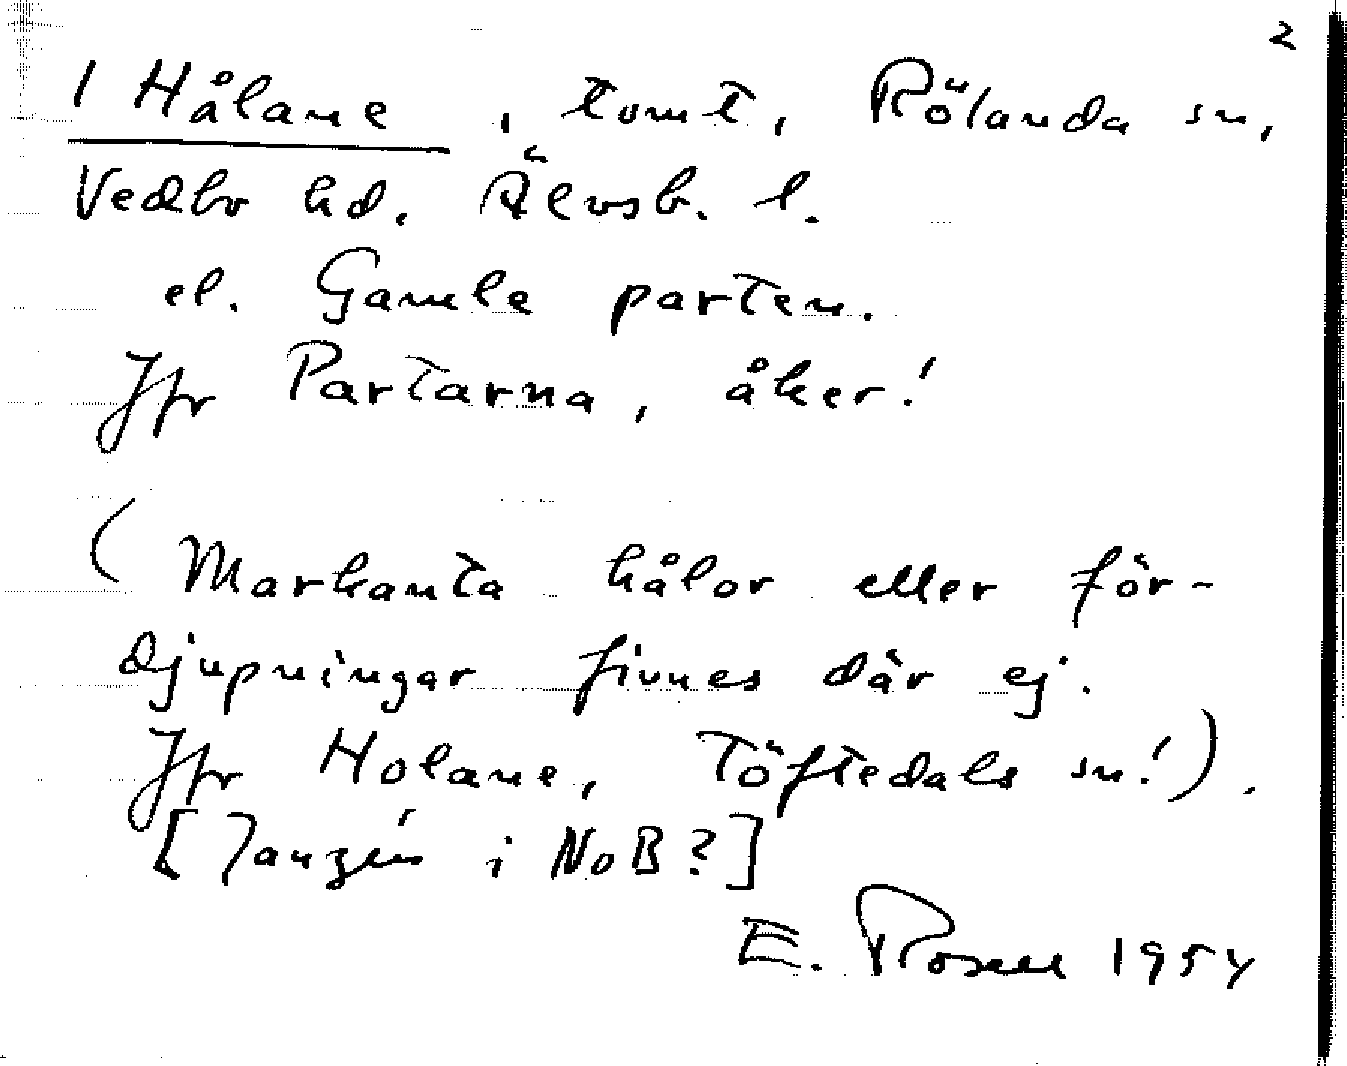 2
I Hålane, tomt, Rölanda sn,
Vedbo hd. Älvsb. l.
el. Gamle parten.
Jfr Partarna, åker!
(Markanta hålor eller för-
djupningar finnes där ej.
Jfr Holane, Töftedals sn!).
[Janzén i NoB?]
E. Rosell 1954